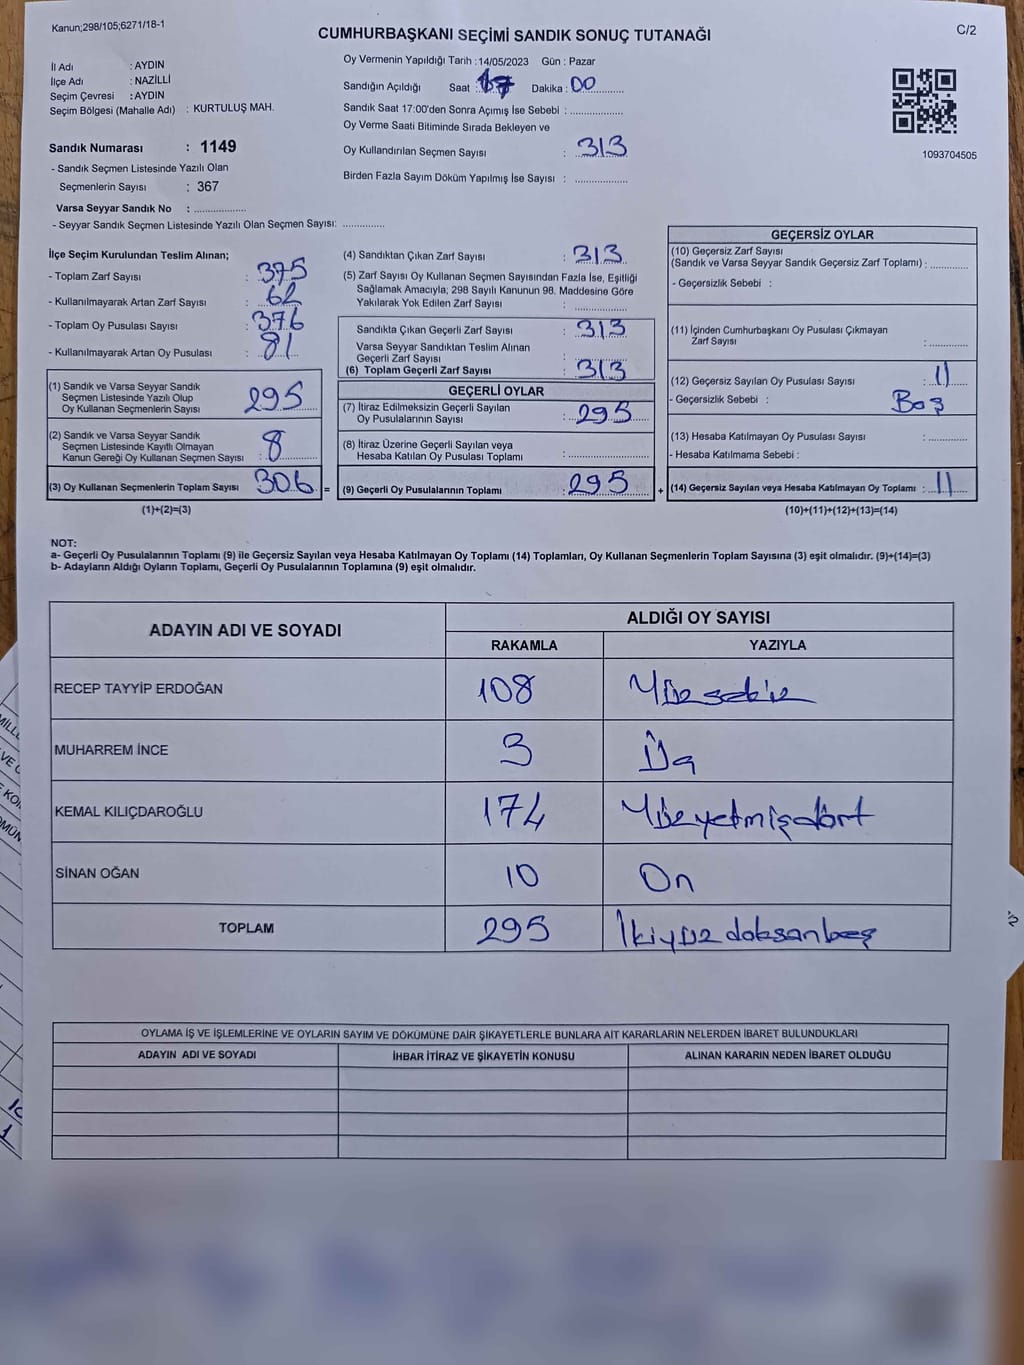 Kanun;298/105;6271/18-1
CUMHURBAŞKANI SEÇİMİ SANDIK SONUÇ TUTANAĞI
C/2
İl Adı : AYDIN
İlçe Adı : NAZİLLİ
Seçim Çevresi : AYDIN
Seçim Bölgesi (Mahalle Adı) : KURTULUŞ MAH.
Sandık Numarası : 1149
- Sandık Seçmen Listesinde Yazılı Olan
Seçmenlerin Sayısı : 367
Varsa Seyyar Sandık No : ..................
- Seyyar Sandık Seçmen Listesinde Yazılı Olan Seçmen Sayısı: ..............
Oy Vermenin Yapıldığı Tarih :14/05/2023 Gün : Pazar
Sandığın Açıldığı Saat : 17 Dakika : 00
Sandık Saat 17:00'den Sonra Açımış İse Sebebi : ..................
Oy Verme Saati Bitiminde Sırada Bekleyen ve
Oy Kullandırılan Seçmen Sayısı : 313
Birden Fazla Sayım Döküm Yapılmış İse Sayısı : ..................
1093704505
İlçe Seçim Kurulundan Teslim Alınan;
- Toplam Zarf Sayısı : 375
- Kullanılmayarak Artan Zarf Sayısı : 62
- Toplam Oy Pusulası Sayısı : 376
- Kullanılmayarak Artan Oy Pusulası : 81
(1) Sandık ve Varsa Seyyar Sandık
Seçmen Listesinde Yazılı Olup
Oy Kullanan Seçmenlerin Sayısı 295
(2) Sandık ve Varsa Seyyar Sandık
Seçmen Listesinde Kayıtlı Olmayan
Kanun Gereği Oy Kullanan Seçmen Sayısı : 8
(3) Oy Kullanan Seçmenlerin Toplam Sayısı 306 =
(1)+(2)=(3)
(4) Sandıktan Çıkan Zarf Sayısı : 313
(5) Zarf Sayısı Oy Kullanan Seçmen Sayısından Fazla İse, Eşitliği
Sağlamak Amacıyla; 298 Sayılı Kanunun 98. Maddesine Göre
Yakılarak Yok Edilen Zarf Sayısı : ..................
Sandıkta Çıkan Geçerli Zarf Sayısı : 313
Varsa Seyyar Sandıktan Teslim Alınan
Geçerli Zarf Sayısı : ..................
(6) Toplam Geçerli Zarf Sayısı : 313
GEÇERLİ OYLAR
(7) İtiraz Edilmeksizin Geçerli Sayılan
Oy Pusulalarının Sayısı : 295
(8) İtiraz Üzerine Geçerli Sayılan veya
Hesaba Katılan Oy Pusulası Toplamı : ..................
(9) Geçerli Oy Pusulalarının Toplamı : 295 +
GEÇERSİZ OYLAR
(10) Geçersiz Zarf Sayısı
(Sandık ve Varsa Seyyar Sandık Geçersiz Zarf Toplamı) : ............
- Geçersizlik Sebebi :
(11) İçinden Cumhurbaşkanı Oy Pusulası Çıkmayan
Zarf Sayısı : ............
(12) Geçersiz Sayılan Oy Pusulası Sayısı : 11
- Geçersizlik Sebebi : Boş
(13) Hesaba Katılmayan Oy Pusulası Sayısı : ............
- Hesaba Katılmama Sebebi :
(14) Geçersiz Sayılan veya Hesaba Katılmayan Oy Toplamı : 11
(10)+(11)+(12)+(13)=(14)
NOT:
a- Geçerli Oy Pusulalarının Toplamı (9) ile Geçersiz Sayılan veya Hesaba Katılmayan Oy Toplamı (14) Toplamları, Oy Kullanan Seçmenlerin Toplam Sayısına (3) eşit olmalıdır. (9)+(14)=(3)
b- Adayların Aldığı Oyların Toplamı, Geçerli Oy Pusulalarının Toplamına (9) eşit olmalıdır.
ADAYIN ADI VE SOYADI
ALDIĞI OY SAYISI
RAKAMLA YAZIYLA
RECEP TAYYİP ERDOĞAN 108 Yüzsekiz
MUHARREM İNCE 3 Üç
KEMAL KILIÇDAROĞLU 174 Yüzyetmişdört
SİNAN OĞAN 10 On
TOPLAM 295 İkiyüzdoksanbeş
OYLAMA İŞ VE İŞLEMLERİNE VE OYLARIN SAYIM VE DÖKÜMÜNE DAİR ŞİKAYETLERLE BUNLARA AİT KARARLARIN NELERDEN İBARET BULUNDUKLARI
ADAYIN ADI VE SOYADI İHBAR İTİRAZ VE ŞİKAYETİN KONUSU ALINAN KARARIN NEDEN İBARET OLDUĞU